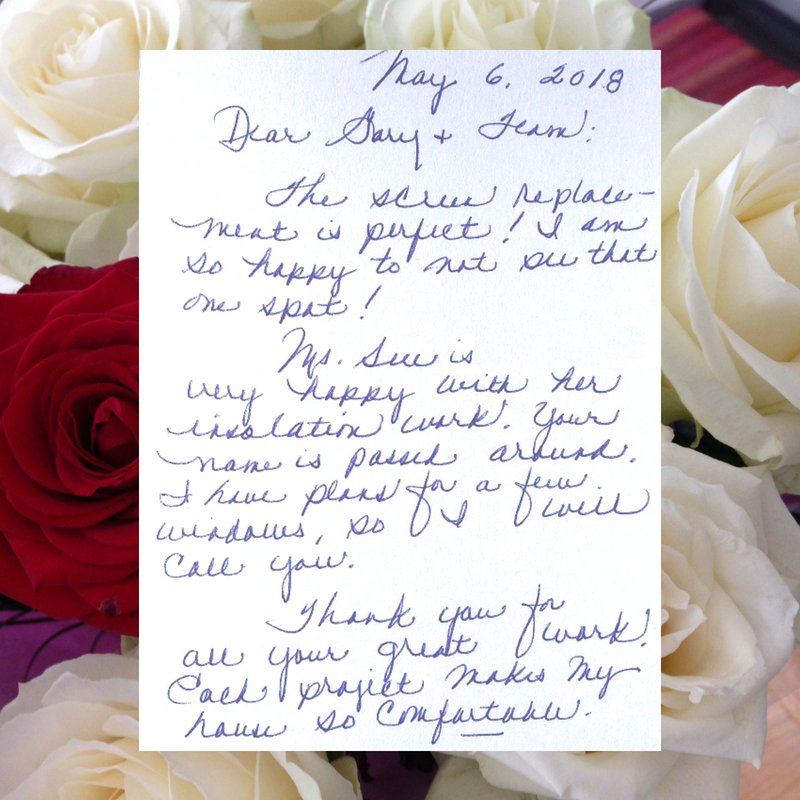 May 6, 2018
Dear Gary + Team:
The screen replace-
ment is perfect! I am
so happy to not see that
one spot!
Ms. Sue is
very happy with her
insolation work. Your
name is passed around.
I have plans for a few
windows, so I will
call you.
Thank you for
all your great work!
Each project makes my
house so comfortable.